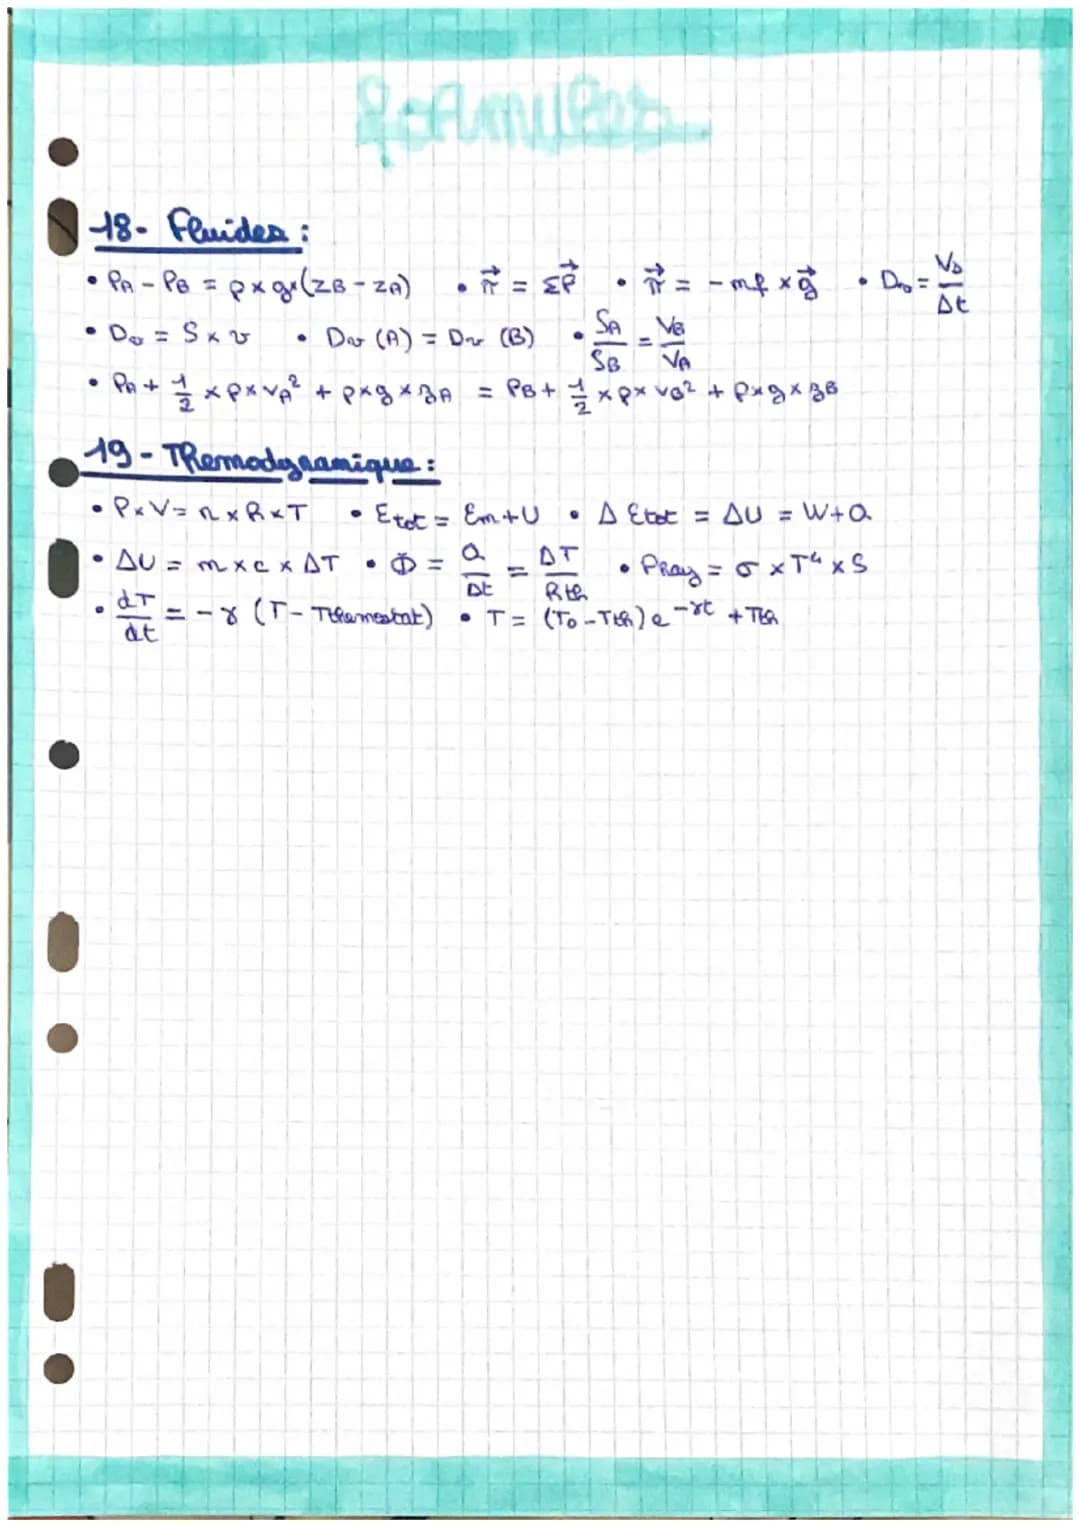 formules
18- Fluides :
• PA - PB = ρ × g × (ZB - ZA) • π⃗ = ΣF⃗ • π⃗ = - mf × g⃗ • Dv = Vs/Δt
• Dv = S × v • Dv (A) = Dv (B) • SA/SB = VB/VA
• PA + 1/2 × ρ × vA² + ρ × g × zA = PB + 1/2 × ρ × vB² + ρ × g × zB
19 - Themodynamique :
• P × V = n × R × T • Etot = Em + U • Δ Etot = ΔU = W + Q
• ΔU = m × c × ΔT • Φ = Q/Δt = ΔT/Rth • Pray = σ × T⁴ × S
• dT/dt = - γ (T - Tthemostat) • T = (T0 - Tth) e^-γt + Tth